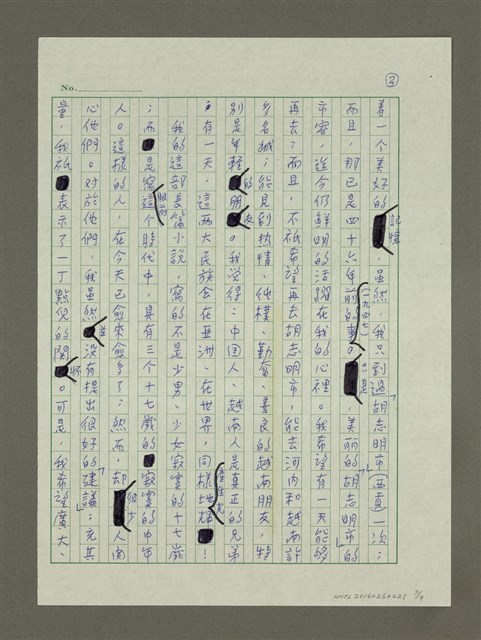 No.
③
着一个美好的記憶。虽然，我只到過「胡志明市」(西貢)一次；
而且，那已是四十六年前的事(一九四七)。可是，美麗的「胡志明市」的
市容，迄今仍鮮明的活躍在我的心裡。我希望有一天能够
再去；而且，不祇希望再去胡志明市，能去河内和越南許
多名城；能見到热情、純樸、勤奮、善良的越南朋友，特
別是年輕的朋友。我覺得：中国人、越南人是真正的兄弟
，有一天，這兩大民族会在亚洲、在世界，同樣地産生光輝！
我的這部長篇小説，寫的不是少男、少女寂寞的十七歲
；而是寫這个眼前時代中，具有三个十七歲的寂寞的中年
人。這樣的人，在今天已愈來愈多了；然而，却很少人関
心他們。对於他們，我虽然並没有提出很好的建議；充其
量，我祇表示了一丁點兒的関怀。可是，我希望廣大、
NMTL20160260221
3/9